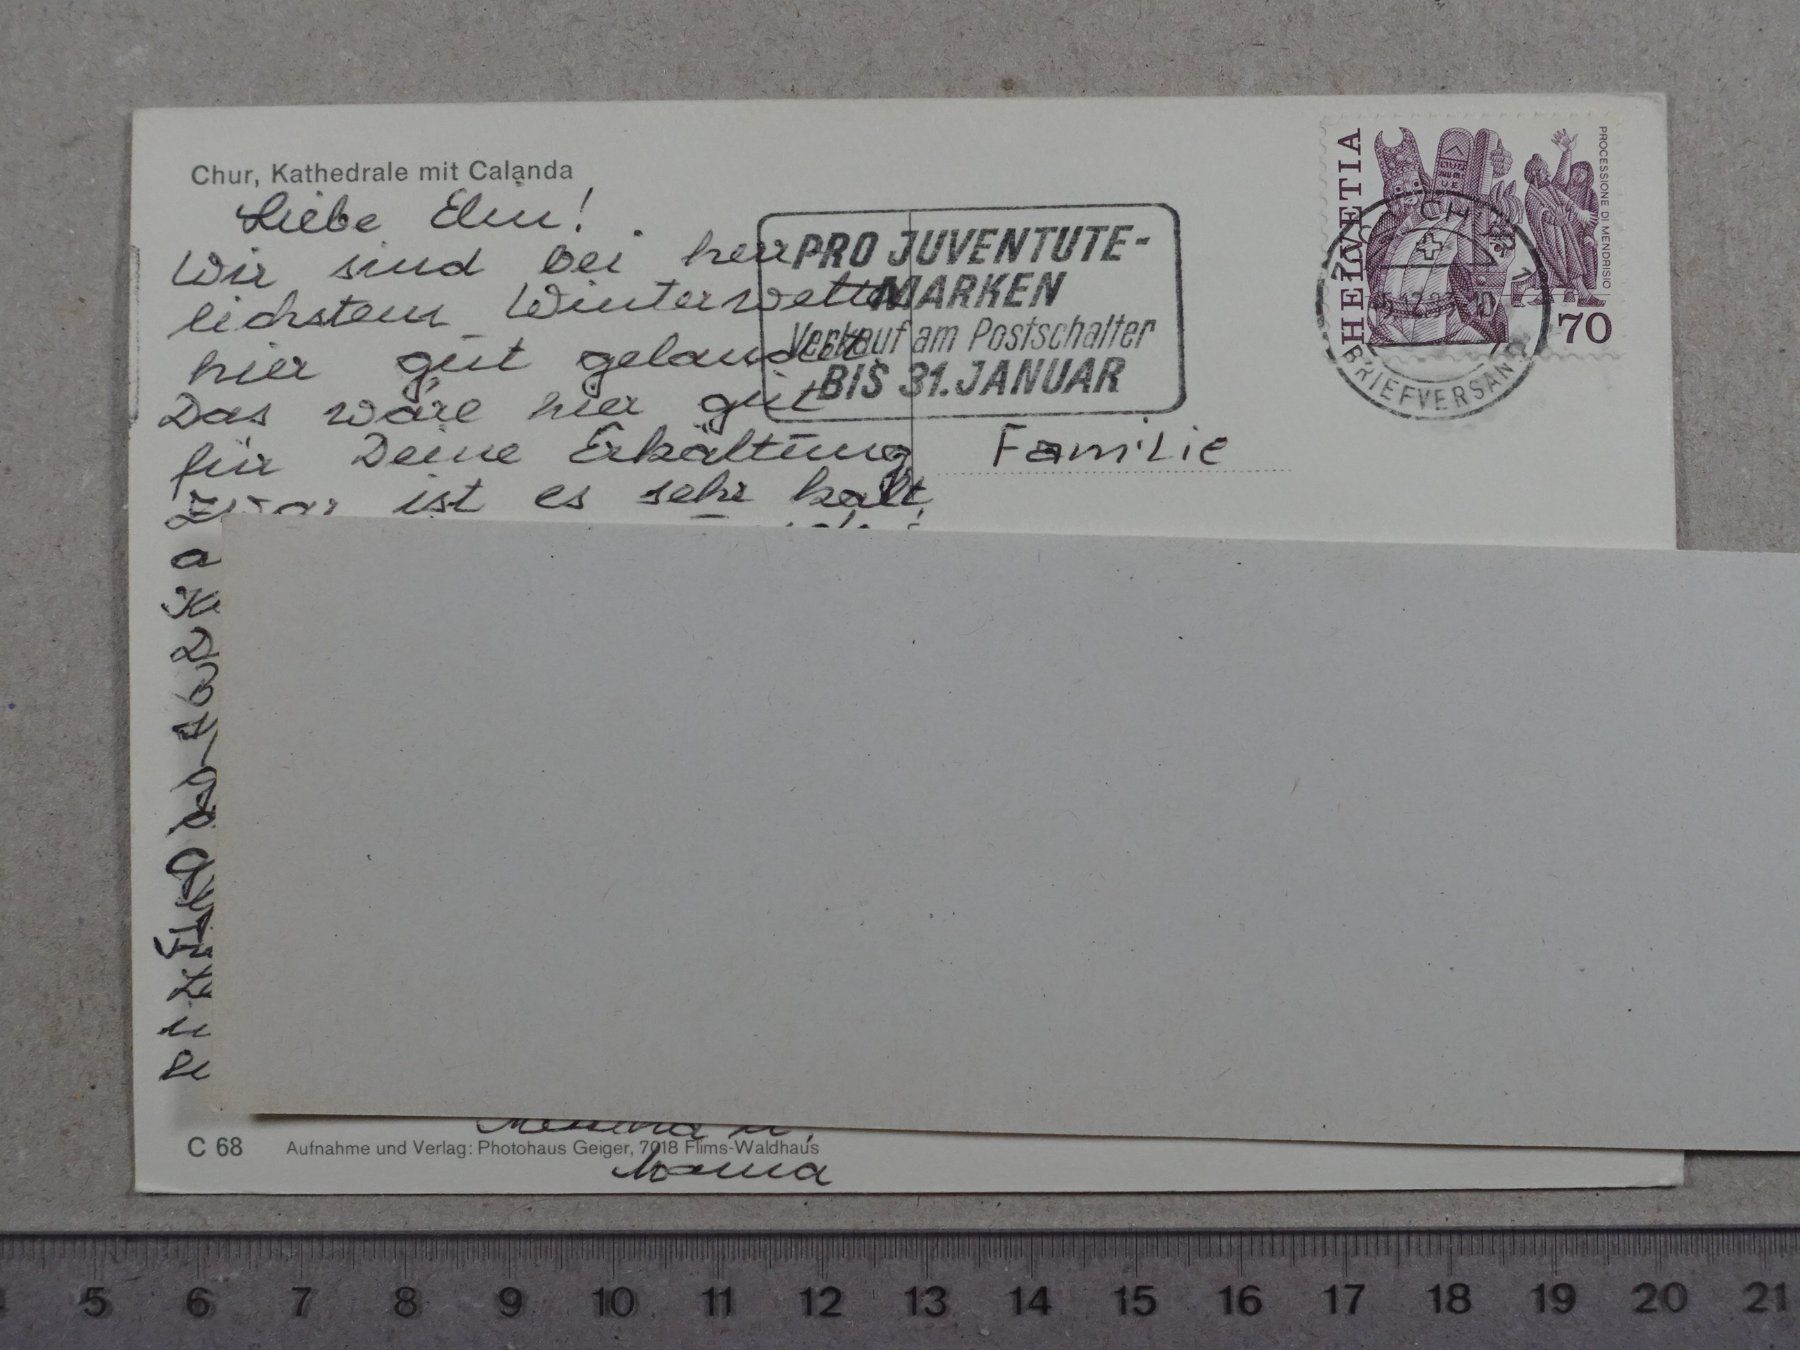 Chur, Kathedrale mit Calanda
Liebe
Wir sind bei herr
lichstem Winterwetter
hier gut gelandet.
Das wäre hier gut
für Deine Erkältung
zwar ist es sehr kalt
PRO JUVENTUTE-
MARKEN
Verkauf am Postschalter
BIS 31. JANUAR
HELVETIA
PROCESSIONE DI MENDRISIO
70
CHUR 1
BRIEFVERSAND
Familie
Mama
C 68 Aufnahme und Verlag: Photohaus Geiger, 7018 Flims-Waldhaus
5 6 7 8 9 10 11 12 13 14 15 16 17 18 19 20 21